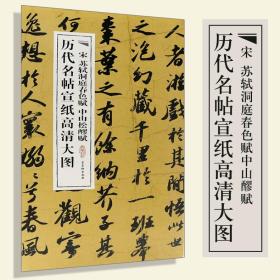 宋 苏轼洞庭春色赋 中山松醪赋
历代名帖宣纸高清大图
藏千里於一班舉
棗葉之有餘納
觀
逸想於人寰嫋嫋
宋 苏轼洞庭春色赋中山醪赋
历代名帖宣纸高清大图